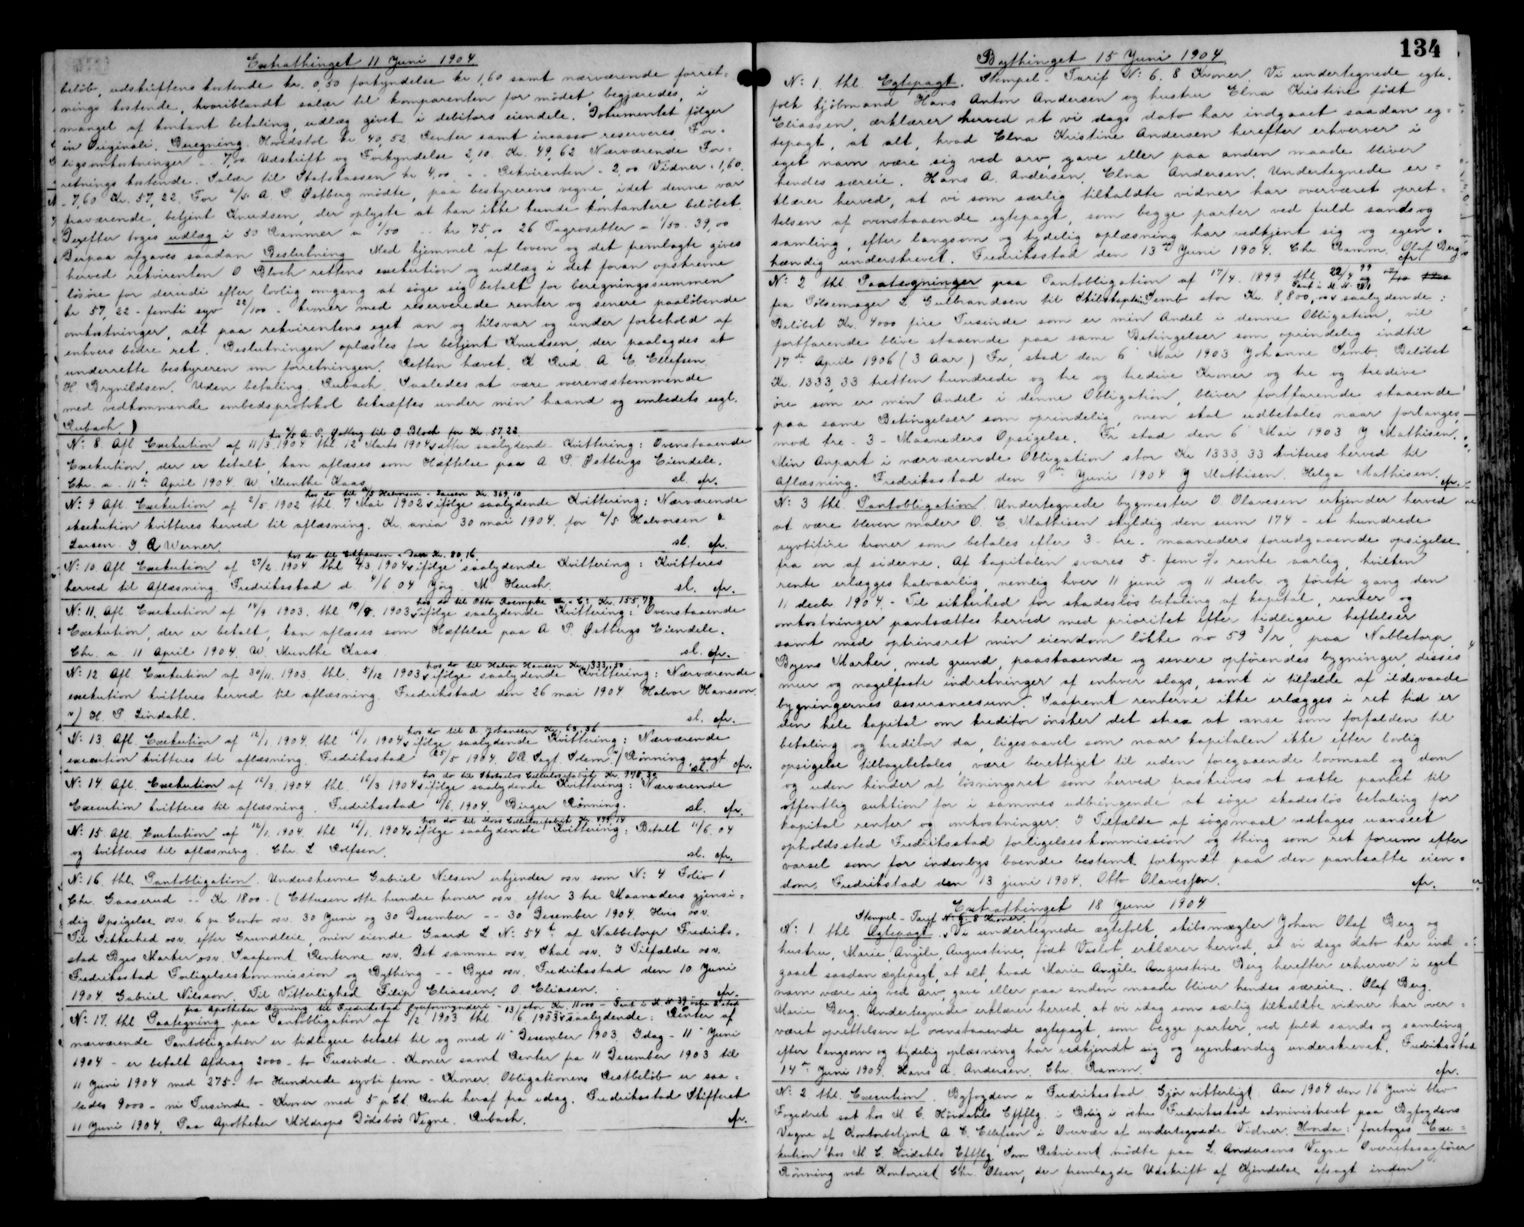 Extrathinget 11 Juni 1904
beløb, udskriftens kostende kr. 0,50 forkyndelse kr 1,60 samt nærværende forret-
nings kostende, hvoriblandt salær til komparenten for mødet begjæredes, i
mangel af kontant betaling, udlæg givet i debitors eiendele. Dokumentet følger
in originali. Beregning. Hovedstol kr 40,52 Renter samt incasso reserveres. For-
ligsomkostninger - 7,00 Udskrift og Forkyndelse 2,10. Kr. 49,62 Nærværende For-
retnings kostende. Salær til Statskassen kr 4,00 - Rekvirenten - 2,00 Vidner - 1,60.
- 7,60 Kr. 57,22. For A. P. Østberg mødte, paa bestyrerens vegne, idet denne var
fraværende, betjent Knudsen, der oplyste at han ikke kunde kontantere beløbet.
Derefter toges udlæg i 50 Rammer a 1/50 - kr 75,00 26 Tagrosetter a 1/50 - 39,00
Derpaa afgaves saadan Beslutning Med hjemmel af loven og det fremlagte gives
herved rekvirenten O Bloch rettens exekution og udlæg i det foran opskrevne
løsøre for derudi efter lovlig omgang at søge sig betalt for beregningssummen
kr 57,22 - femti syv 22/100 - kroner med reserverede renter og senere paaløbende
omkostninger, alt paa rekvirentens eget an og tilsvar og under forbehold af
enhvers bedre ret. Beslutningen oplæstes for betjent Knudsen, der paalagdes at
underrette bestyreren om forretningen. Retten hævet. K Rud. A E Ellefsen
H Brynildsen. Uden betaling. Rubach. Saaledes at være overensstemmende
med vedkommende embedsprotokol bekræftes under min haand og embedets segl.
Rubach.)
hos A. P. Østberg til O. Bloch for Kr. 57.22
No 8 Afl. Exekution af 11/3 1904 thl 12 Marts 1904 ifølge saalydende Kvittering: Ovenstaaende
Exekution, der er betalt, kan aflæses som Hæftelse paa A P. Østbergs Eiendele.
Chr. a. 11te April 1904. W. Munthe Kaas sl. cfr.
hos do til A/S Halvorsen & Larsen Kr. 369,10
No 9 Afl. Exekution af 2/5 1902 thl 7 Mai 1902 ifølge saalydende Kvittering: Nærværende
exekution kvitteres herved til aflæsning. Kr. ania 30 mai 1904. for A/S Halvorsen &
Larsen. I A Werner. sl. cfr.
No 10. Afl. Exekution af 27/2 1904 thl 4/3 1904 ifølge saalydende Kvittering: Kvitteres
herved til Aflæsning Fredrikstad d. 4/6 04 Jörg. M. Heuch. sl. cfr.
No 11. Afl. Exekution af 14/8 1903. thl 19/8. 1903 ifølge saalydende Kvittering: Ovenstaaende
Exekution, der er betalt, kan aflæses som Hæftelse paa A P. Østbergs Eiendele.
Chr. a. 11 April 1904. W. Munthe Kaas sl. cfr.
hos do til Halvor Hansen Kr. 333,30
No 12 Afl. Exekution af 30/11. 1903. thl. 5/12 1903 ifølge saalydende Kvittering: Nærværende
exekution kvitteres herved til aflæsning. Fredrikstad den 26 mai 1904 Halvor Hansson
v/ H. P Lindahl. sl. cfr.
hos do til A. Johansen Kr. 63,96
No 13. Afl. Exekution af 12/1 1904. thl 16/1 1904 ifølge saalydende Kvittering: Nærværende
execution kvitteres til aflæsning. Fredrikstad 25/5 1904. v/ Rønning, sagf. sl. cfr.
No 14. Afl. Exekution af 12/3 1904 thl. 16/3 1904 ifølge saalydende Kvittering: Nærværende
Execution kvitteres til aflæsning. Fredrikstad 11/6. 1904. Birger Rønning. sl. cfr.
No 15 Afl. Exekution af 12/1. 1904. thl 16/1. 1904 ifølge saalydende Kvittering: Betalt 11/6. 04
og kvitteres til aflæsning. Chr. L Rolfsen. sl. cfr.
No 16 thl. Pantobligation. Underskrevne Gabriel Nilsen erkjender osv som No 4 Folio 1
Chr. Gaaserud -- Kr 1800 - (Ettusen otte hundre kroner osv. efter 3 tre Maaneders gjensi-
dig Opsigelse osv. 6 pr Cento osv. 30 Juni og 30 December -- 30 December 1904. Hvis osv.
Til Sikkerhed osv. efter Grundleie, min eiende Gaard L No 54 b af Nabbetorp Fredrik-
stad Byes Marker osv. Saafremt Renterne osv. Det samme osv. Skal osv. I Tilfælde osv.
Fredrikstad Forligelseskommission og Bything -- Byes osv. Fredrikstad den 10 Juni
1904 Gabriel Nilsson. Til Vitterlighed Filip Eliassen. O Eliassen. cfr.
No 17. thl Paategning paa Pantobligation af 1/2 1903 thl 1903 saalydende: Renter af
nærværende Pantobligation er tidligere betalt til og med 11 December 1903. Idag - 11 Juni
1904 - er betalt Afdrag 2000 - to Tusinde - Kroner samt Renter fra 11 December 1903 til
11 Juni 1904 med 275 to Hundrede syvti fem - Kroner. Obligationens Restbeløb er saa-
ledes 9000 - ni Tusinde - Kroner med 5 p Ct Rente heraf fra idag. Fredrikstad Skifteret
11 Juni 1904. Paa Apotheker Mildrops Dødsbos Vegne. Rubach. cfr.
134
Bythinget 15 Juni 1904
No 1. thl Egtepagt. Stempel-Tarif No 6. 8 Kroner. Vi undertegnede egte-
folk kjøbmand Hans Anton Andersen og hustru Elna Kristine født
Eliassen, erklærer herved at vi dags dato har indgaaet saadan eg-
tepagt, at alt, hvad Elna Kristine Andersen herefter erhverver i
eget navn være sig ved arv, gave eller paa anden maade bliver
hendes særeie. Hans A. Andersen. Elna Andersen. Undertegnede er-
klærer herved, at vi som særlig tilkaldte vidner har overværet opret-
telsen af ovenstaaende egtepagt, som begge parter ved fuld sands og
samling, efter langsom og tydelig oplæsning har vedkjent sig og egen-
hændig underskrevet. Fredriksstad den 13de Juni 1904. Chr. Ramm. Olaf Berg. cfr.
No 2 thl Paategninger paa Pantobligation af 17/4. 1899 thl 22/4 99
fra Pølsemager L Gulbrandsen til Skibskaptein Semb stor Kr. 8,800,00 saalydende:
Beløbet Kr. 4000 fire Tusinde som er min Andel i denne Obligation, vil
fortfarende blive staaende paa same Betingelser som oprindelig indtil
17de April 1906 (3 Aar) Fr. stad den 6 Mai 1903 Johanne Semb. Beløbet
Kr. 1333,33 tretten hundrede og tre og tredive Kroner og tre og tredive
øre som er min Andel i denne Obligation, bliver fortfarende staaende
paa same Betingelser som oprindelig men skal udbetales naar forlanges
mod tre - 3 - Maaneders Opsigelse. Fr. stad den 6 Mai 1903 J Mathisen.
Min Anpart i nærværende Obligation stor Kr 1333,33 kviteres herved til
Aflæsning. Fredriksstad den 9de Juni 1904 J Mathisen. Helga Mathisen. cfr.
No 3 thl. Pantobligation. Undertegnede bygmester O. Olavesen erkjender herved
at være bleven maler O. E Mathisen skyldig den sum 174 - et hundrede
syvtifire kroner som betales efter 3 - tre - maaneders forudgaaende opsigelse
fra en af siderne. Af kapitalen svares 5 - fem % rente aarlig, hvilken
rente erlægges halvaarlig, nemlig hver 11 juni og 11 decbr og første gang den
11 decbr 1904. - Til sikkerhed for skadesløs betaling af kapital, renter og
omkostninger pantsættes herved med prioritet efter tidligere heftelser
samt med optrinsret min eiendom løkke no 59 3/r, paa Nabbetorp
Byens Marker, med grund, paastaaende og senere opførendes bygninger, disses
mur og nagelfaste indretninger af enhver slags, samt i tilfælde af ildsvaade
bygningernes assurancesum. Saafremt renterne ikke erlægges i ret tid er
den hele kapital om kreditor ønsker det skea at anse som forfalden til
betaling og kreditor da, ligesaavel som naar kapitalen ikke efter lovlig
opsigelse tilbagebetales være berettiget til uden foregaaende lovmaal og dom
og uden hinder af løsningsret som herved fraskrives at sætte pantet til
offentlig auktion for i sammes udbringende at søge skadesløs betaling for
kapital renter og omkostninger. I Tilfælde af søgsmaal vedtages uanseet
opholdssted Fredriksstad forligelseskommission og thing som ret forum efter
varsel som for indenbys boende bestemt forkyndt paa den pantsatte eien-
dom. Fredrikstad den 13 juni 1904. Otto Olavessen. cfr.
Extrathinget 18 Juni 1904
Stempel-Tarif No 6. 8 Kroner
No 1. thl Egtepagt. Vi undertegnede ægtefolk, skibsmægler Johan Olaf Berg og
hustru, Marie, Angile, Augustine, født Varlot, erklærer herved, at vi dags dato har ind-
gaaet saadan ægtepagt, at alt, hvad Marie Angile Augustine Berg herefter erhverver i eget
navn være sig ved arv, gave eller paa anden maade bliver hendes særeie. Olaf Berg.
Marie Berg. Undertegnede erklærer herved, at vi idag som særlig tilkaldte vidner har over-
været oprettelsen af ovenstaaende ægtepagt, som begge parter, ved fuld sands og samling,
efter langsom og tydelig oplæsning har vedkjendt sig og egenhændig underskrevet. Fredriksstad
14de Juni 1904. Hans A. Andersen. Chr. Ramm. cfr.
No 2 thl. Execution. Byfogden i Fredriksstad Gjør vitterligt. Aar 1904 den 16 Juni blev
Fogedret sat hos M E. Høidahls Eftflg. i Bolig i østre Fredriksstad administreret paa Byfogdens
Vegne af Kontorbetjent A E. Ellefsen i Overvær af undertegnede Vidner. Hvorda: foretoges Exe-
kution hos M E. Høidahls Eftflg. Som Rekvirent mødte paa L. Andersens Vegne Overretssagfører
Rønning ved Kontorist Chr. Olsen, der fremlagde Udskrift af Kjendelse afsagt inden